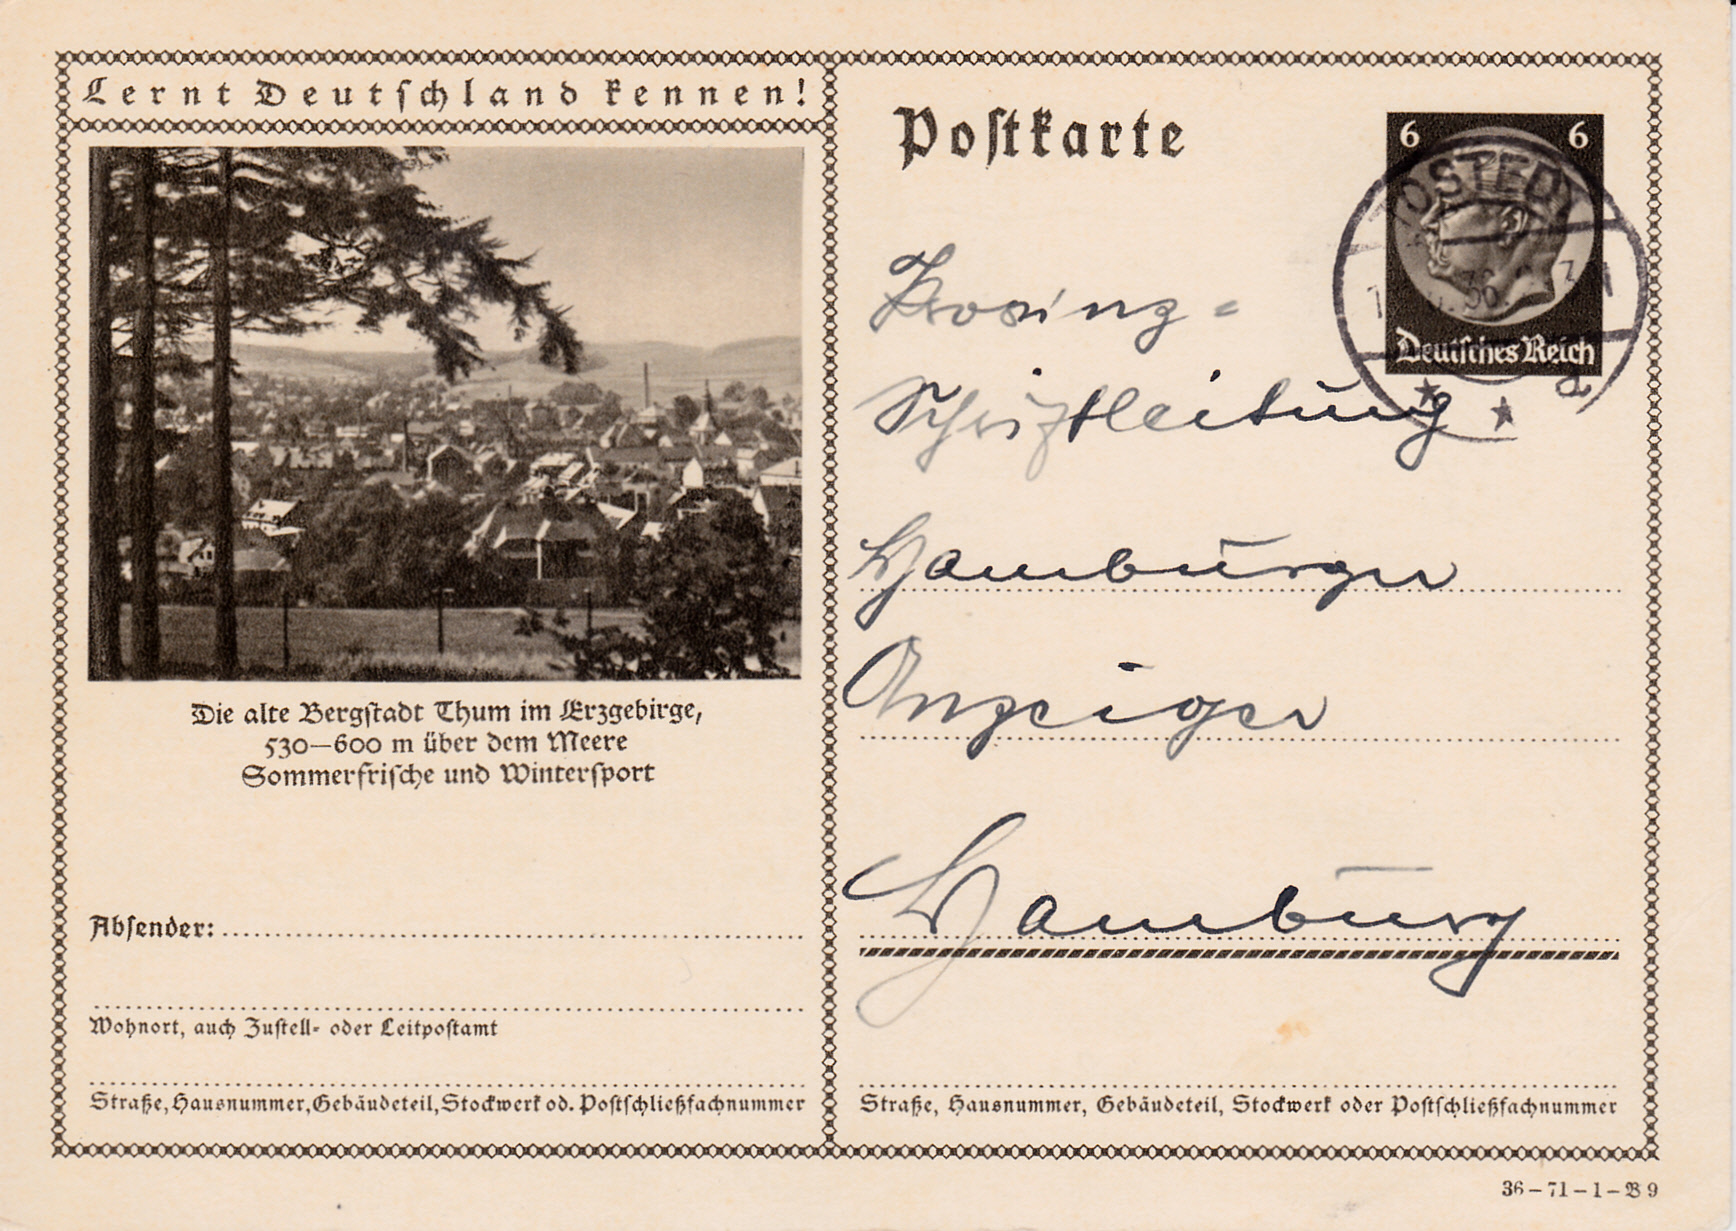 Lernt Deutschland kennen!
Die alte Bergstadt Thum im Erzgebirge,
530—600 m über dem Meere
Sommerfrische und Wintersport
Absender:
Wohnort, auch Zustell- oder Leitpostamt
Straße, Hausnummer, Gebäudeteil, Stockwerk od. Postschließfachnummer
Postkarte
6 6
Deutsches Reich
Schriftleitung
Hamburger
Anzeiger
Hamburg
Straße, Hausnummer, Gebäudeteil, Stockwerk oder Postschließfachnummer
36-71-1-B 9